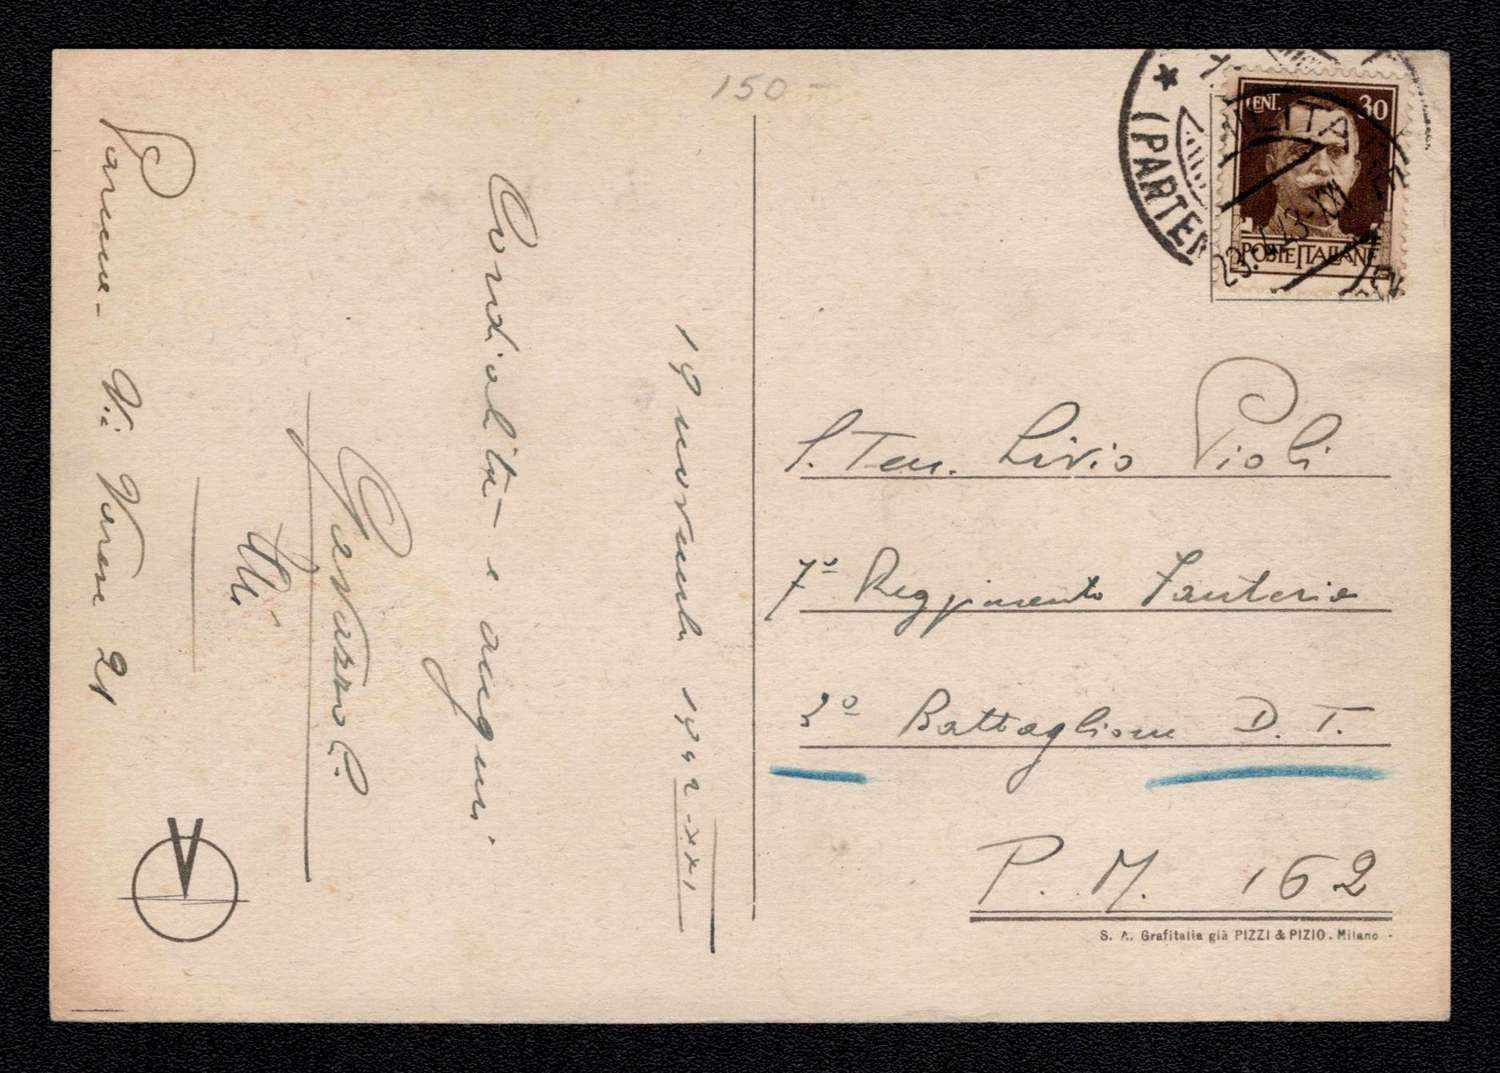 150 -
19 novembre 1942-XXI
Cordialità e auguri
Gavazzoli
Parma - Via Varese 21
CENT. 30
POSTE ITALIANE
* (PARTEN
S. Ten. Livio Pioli
7º Reggimento Fanteria
2º Battaglione D. T.
P. M. 162
S. A. Grafitalia già PIZZI & PIZIO. Milano -